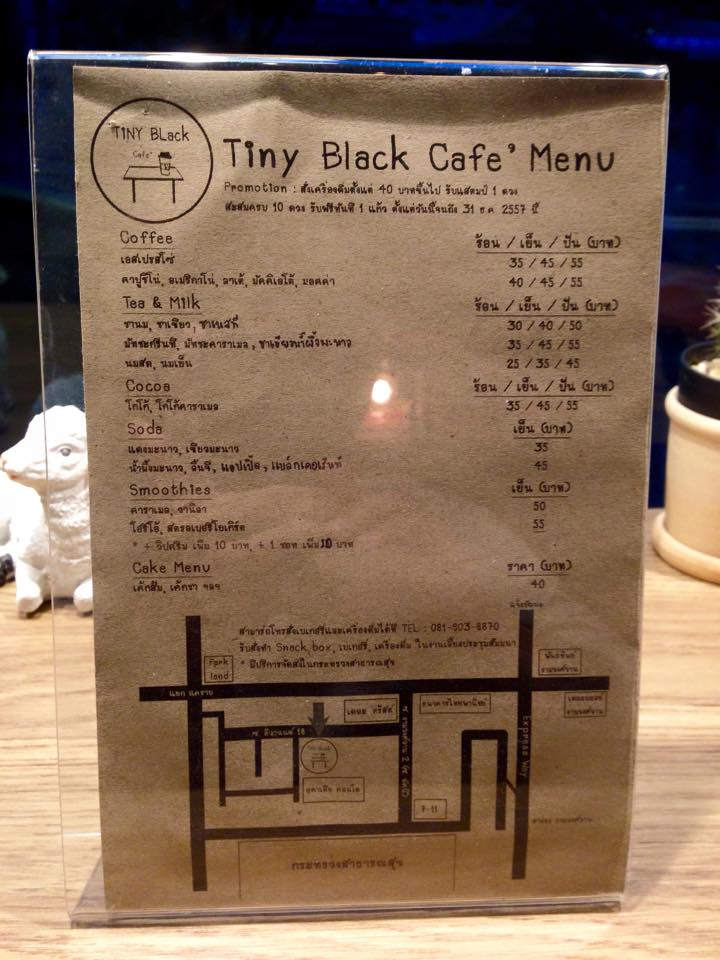 TINY BLack
Cafe'
Tiny Black Cafe' Menu
Promotion : สั่งเครื่องดื่มตั้งแต่ 40 บาทขึ้นไป รับแสตมป์ 1 ดวง
สะสมครบ 10 ดวง รับฟรีทันที 1 แก้ว ตั้งแต่วันนี้จนถึง 31 ธ.ค. 2557 นี้
Coffee ร้อน / เย็น / ปั่น (บาท)
เอสเปรสโซ่ 35 / 45 / 55
คาปูชิโน่, อเมริกาโน่, ลาเต้, มัคคิเอโต้, มอคค่า 40 / 45 / 55
Tea & Milk ร้อน / เย็น / ปั่น (บาท)
ชานม, ชาเขียว, ชาเนสที 30 / 40 / 50
มัทฉะกรีนที, มัทฉะคาราเมล, ชาเขียวน้ำผึ้งมะนาว 35 / 45 / 55
นมสด, นมเย็น 25 / 35 / 45
Cocoa ร้อน / เย็น / ปั่น (บาท)
โกโก้, โกโก้คาราเมล 35 / 45 / 55
Soda เย็น (บาท)
แดงมะนาว, เขียวมะนาว 35
น้ำผึ้งมะนาว, ลิ้นจี่, แอปเปิ้ล, แบล็กเคอเร้นท์ 45
Smoothies เย็น (บาท)
คาราเมล, วานิลา 50
โอริโอ้, สตรอเบอร์รี่โยเกิร์ต 55
* + วิปครีม เพิ่ม 10 บาท, + 1 ชอท เพิ่ม 10 บาท
Cake Menu ราคา (บาท)
เค้กส้ม, เค้กชา ฯลฯ 40
แจ้งวัฒนะ
สามารถโทรสั่งเบเกอรี่และเครื่องดื่มได้ที่ TEL : 081-903-8870
รับสั่งทำ Snack box, เบเกอรี่, เครื่องดื่ม ในงานเลี้ยงประชุมสัมมนา
* มีบริการจัดส่งในกระทรวงสาธารณสุข
Park
land
พันธ์ทิพย์
งามวงศ์วาน
แยก แคราย
เดอะมอลล์
งามวงศ์วาน
เดอะ คริสต์
ธนาคารไทยพาณิชย์
ซ. ติวานนท์ 18
TINY BLack
Express Way
7-11
กระทรวงสาธารณสุข